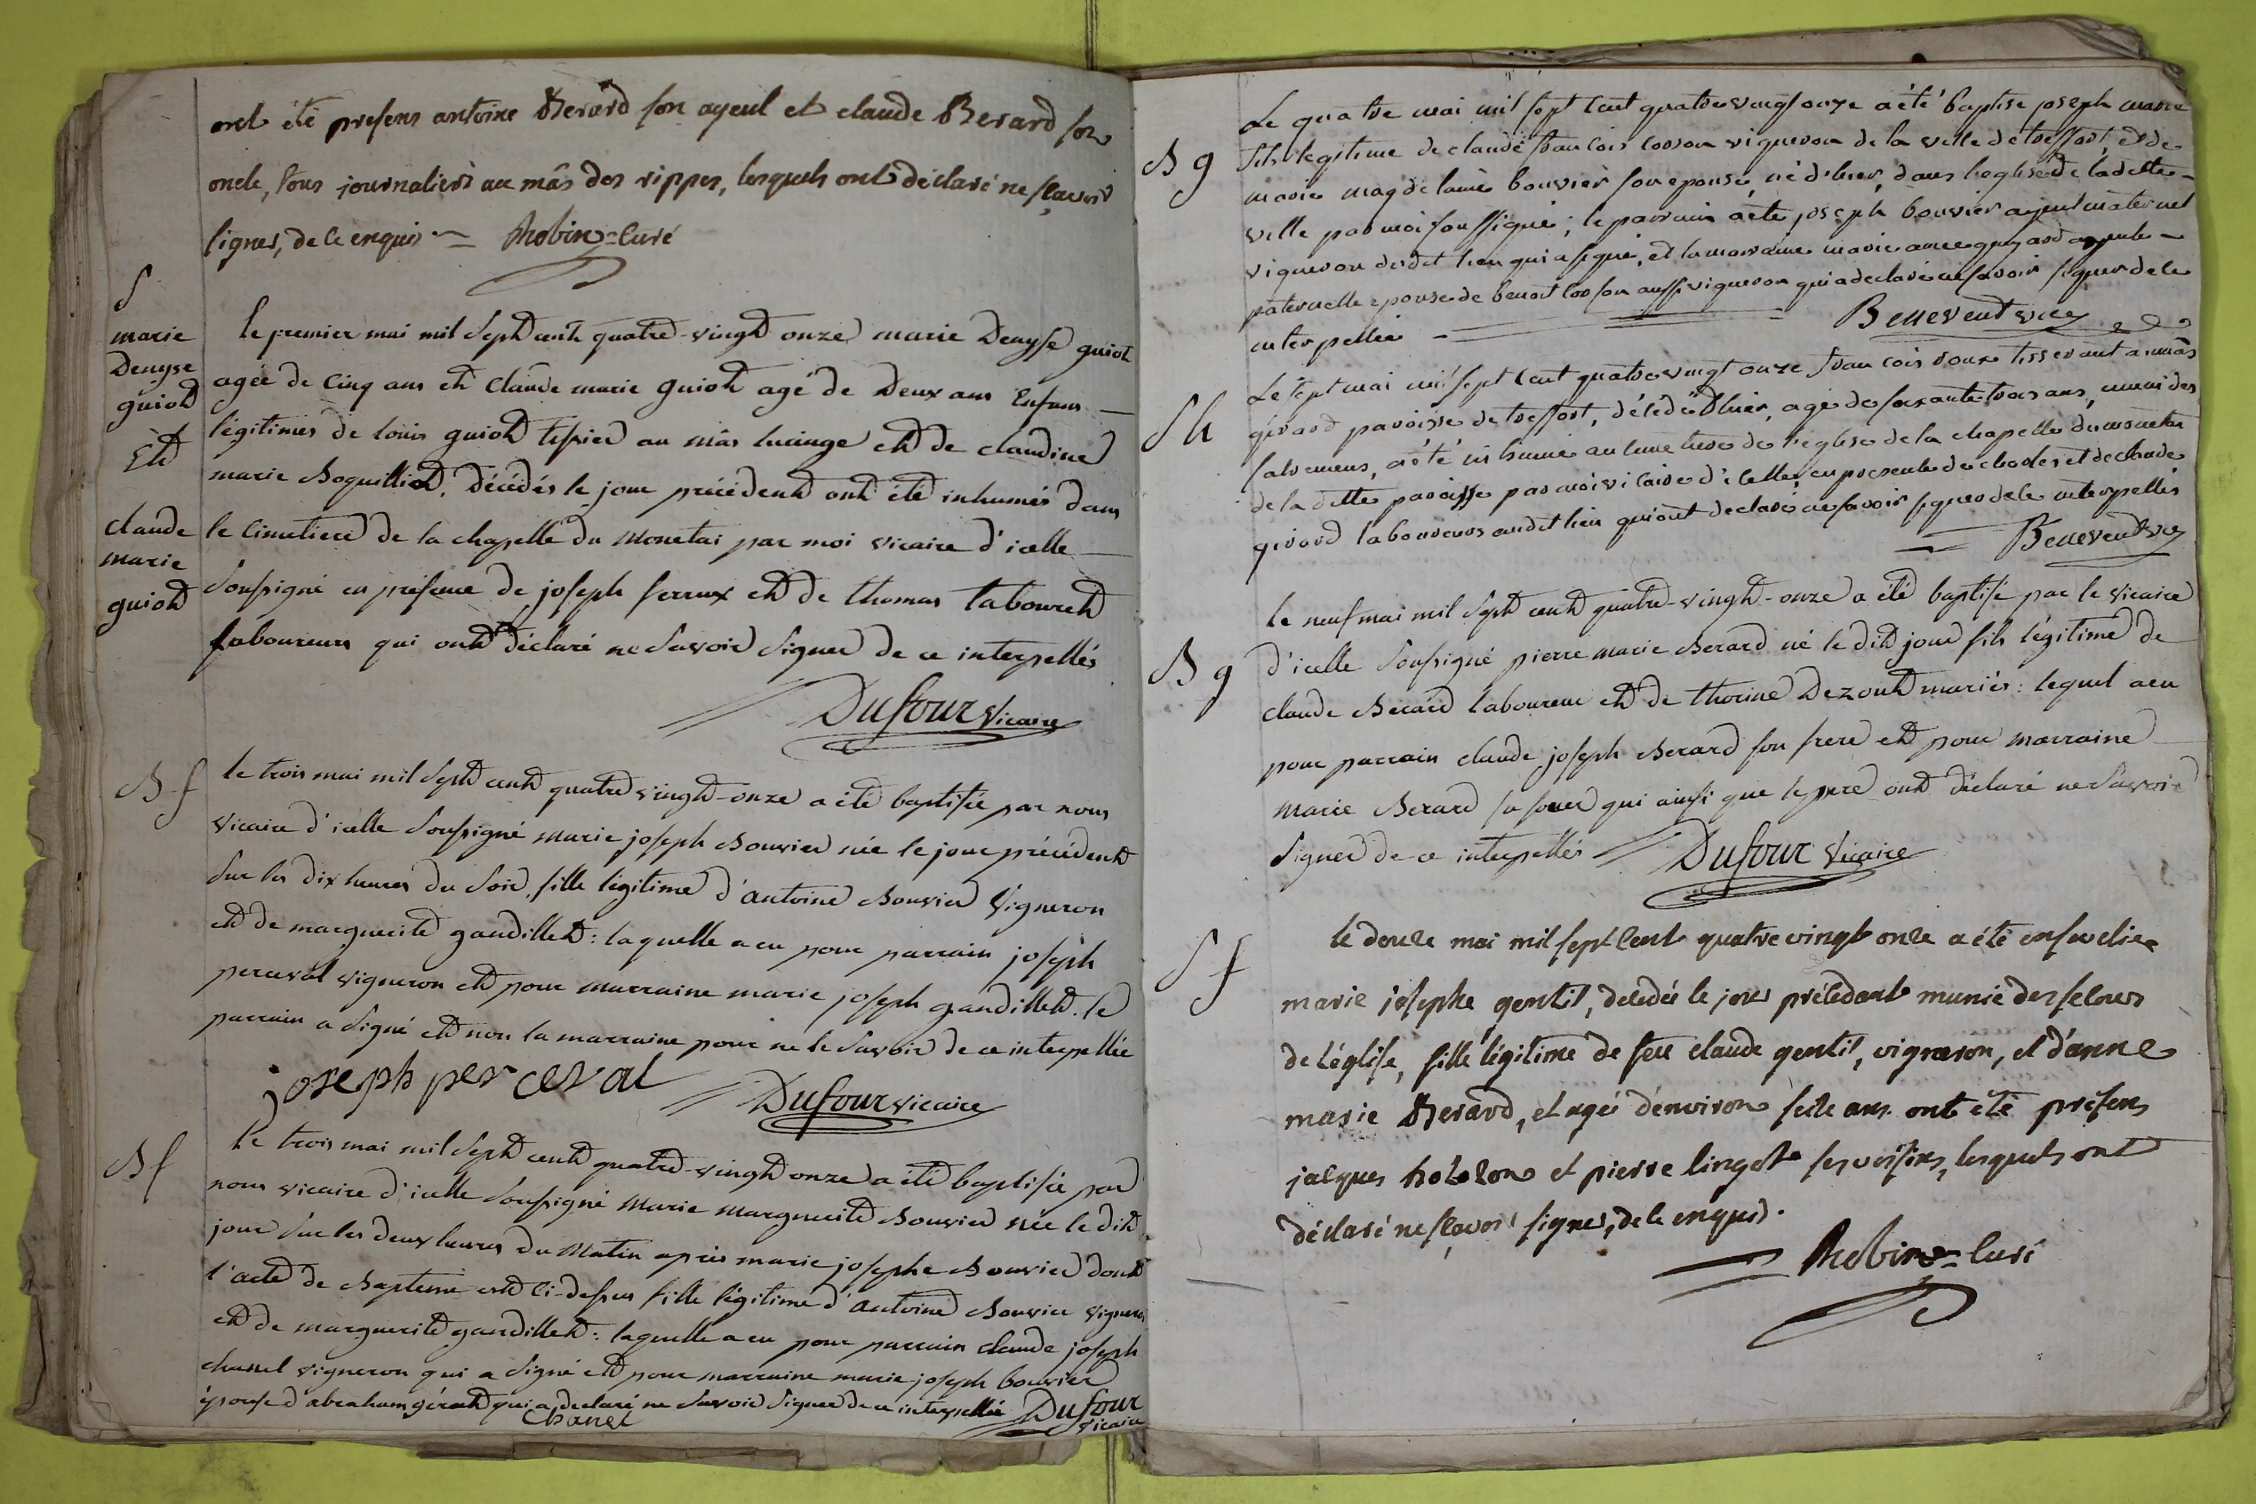 ont été presens antoine Berard son ayeul et claude Berard son
oncle, tous journaliers au mâs des rippes, lesquels ont déclaré ne sçavoir
signer, de ce enquis = Robin = Curé
S
marie
Denyse
guiot
Et
claude
marie
guiot
le premier mai mil Sept cent quatre-vingt onze marie Denyse guiot
agée de Cinq ans et Claude marie guiot agé de Deux ans Enfans
légitimes de louis guiot tissier au mâs lucinge et de claudine
marie Boquilliod, décédés le jour précédent ont été inhumés dans
le Cimetiere de la chapelle du Monetai par moi vicaire d'icelle
Soussigné en présence de joseph ferrux et de thomas tabouret
laboureurs qui ont déclaré ne Savoir Signer de ce interpellés
Dufour Vicaire
B f
le trois mai mil Sept cent quatre vingt-onze a été baptisée par nous
Vicaire d'icelle Soussigné marie joseph Bouvier née le jour précédent
Sur les dix heures du Soir, fille légitime d'antoine Bouvier Vigneron
et de marguerite gandillet : laquelle a eu pour parrain joseph
perceval vigneron et pour marraine marie joseph gandillet. le
parrain a Signé et non la marraine pour ne le Savoir de ce interpellée
joseph perceval
Dufour vicaire
B f
le trois mai mil Sept cent quatre-vingt onze a été baptisée par
nous vicaire d'icelle Soussigné Marie marguerite Bouvier née le dit
jour Sur les deux heures du Matin après marie josephe Bouvier dont
l'acte de Bapteme est Ci-dessus fille légitime d'antoine Bouvier vigneron
et de marguerite gandillet : laquelle a eu pour parrain claude joseph
chanel vigneron qui a Signé et pour marraine marie joseph bouvier
épouse d'abraham qui a déclaré ne Savoir Signer de ce interpellée Dufour
Chanel
Vicaire
B g
Le quatre mai mil sept cent quatre vingt onze a été baptisé joseph marie
fils legitime de claude françois cosson vigneron de la ville de treffort, et de
marie magdelaine bouvier son epouse, né d'hier, dans l'eglise de la dette
ville par moi soussigné ; le parrain a été joseph bouvier ayeul maternel
vigneron dudit lieu qui a signé, et la marraine marie anne guyard ayeule
paternelle epouse de benoit cosson aussi vigneron qui a declaré ne savoir signer de ce
interpellée
Benevent vic
S h
Le sept mai mil sept cent quatre vingt onze francois roux tisserant au mâs
girard paroisse de treffort, décédé d'hier, agé de soixante trois ans, muni des
sacremens, a été inhumé au cimetiere de l'eglise de la chapelle du monetai
de la dette paroisse par moi vicaire d'icelle, en presence de charles et de claude
girard laboureurs audit lieu qui ont declaré ne savoir signer de ce interpellés
Benevent vic
B g
le neuf mai mil Sept cent quatre-vingt-onze a été baptisé par le Vicaire
d'icelle Soussigné pierre marie Berard né le dit jour fils légitime de
claude Berard laboureur et de thorine Dezout mariés : lequel a eu
pour parrain claude joseph Berard son frere et pour marraine
marie Berard sa soeur qui ainsi que le pere ont déclaré ne Savoir
Signer de ce interpellés Dufour Vicaire
S f
le douze mai mil sept cent quatre vingt onze a été ensevelie
marie josephe gentil, décédée le jour précédant munie des secours
de l'église, fille légitime de feu claude gentil, vigneron, et d'anne
marie Berard, et agé d'environ seize ans ont été présens
jacques et pierre lingot ses voisins, lesquels ont
déclaré ne sçavoir signer, de ce enquis.
Robin = Curé